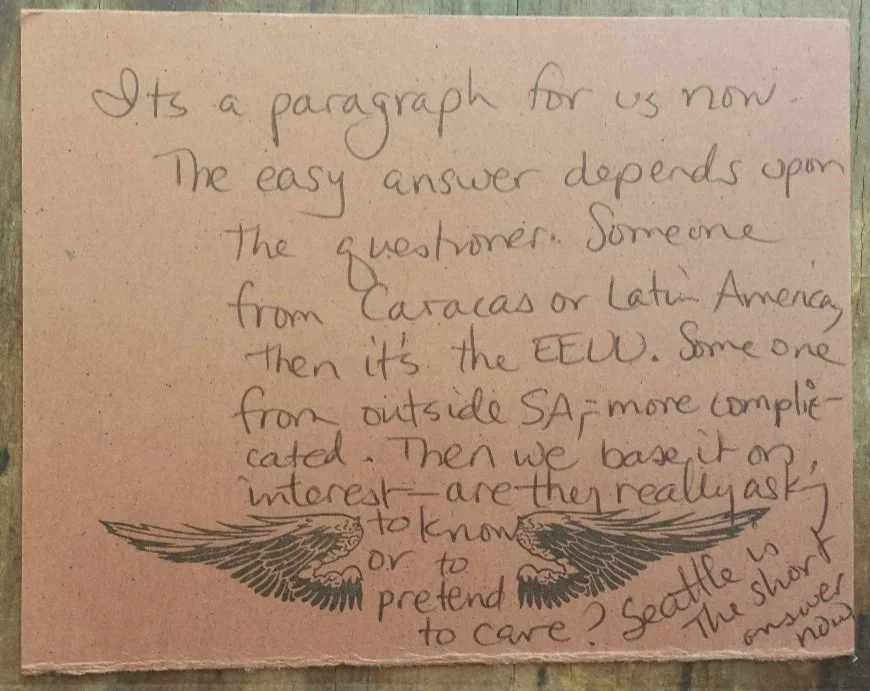 Its a paragraph for us now.
The easy answer depends upon
the questioner. Someone
from Caracas or Latin America,
then it's the EEUU. Someone
from outside SA, – more compli-
cated. Then we base it on
interest – are they really asking
to know
or to
pretend
to care? Seattle is
The short
answer
now